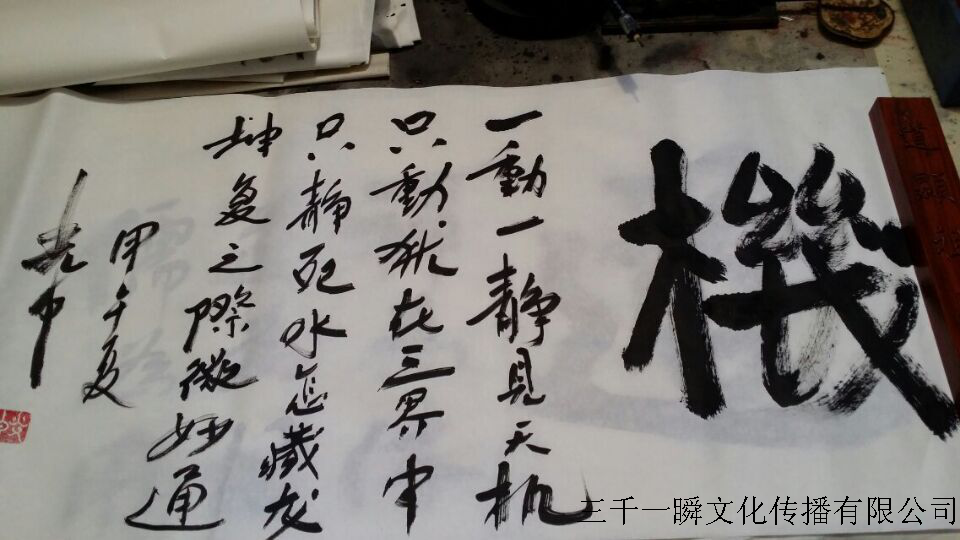 機
一動一静見天机
只動犹在三界中
只静死水怎藏龙
坤复之際微妙通
甲午夏
三千一瞬文化传播有限公司